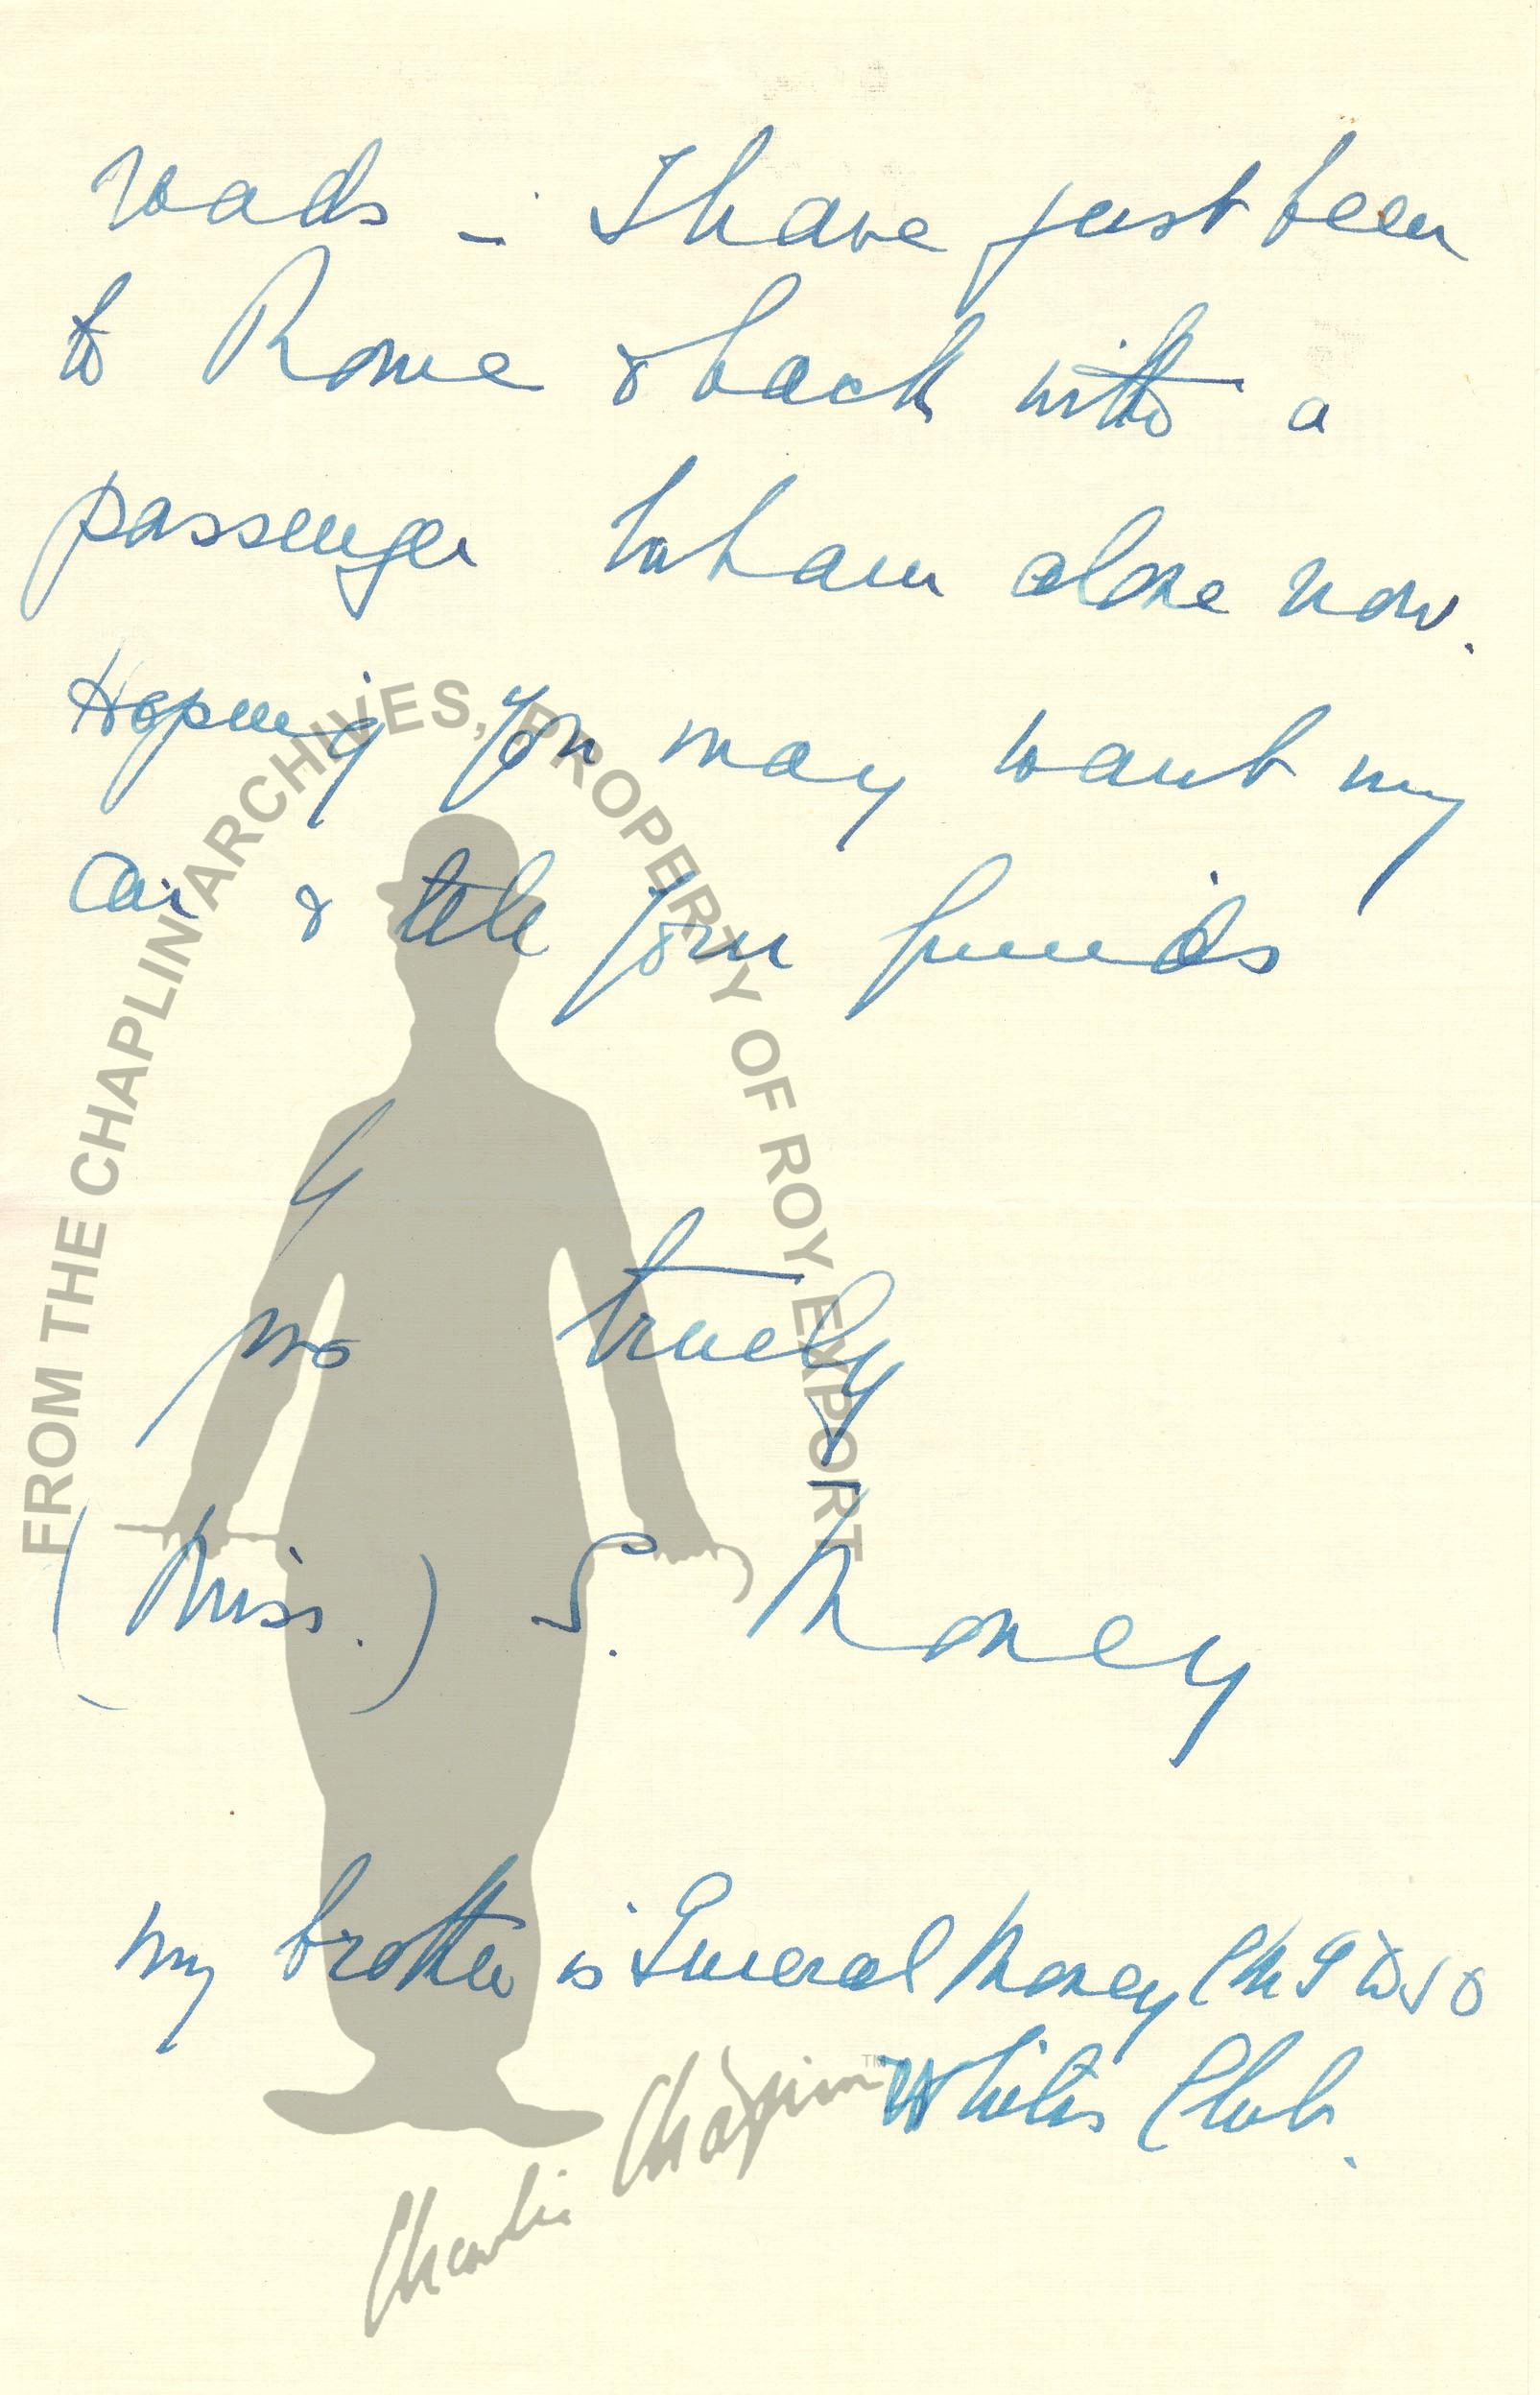 roads - I have just been
to Rome & back with a
passenger but am alone now.
Hoping you may want my
Car & tell your friends
yrs truely
(Miss.) S. Money
my brother is General Money CMG DSO
White's Club.
FROM THE CHAPLIN ARCHIVES, PROPERTY OF ROY EXPORT
Charlie Chaplin™